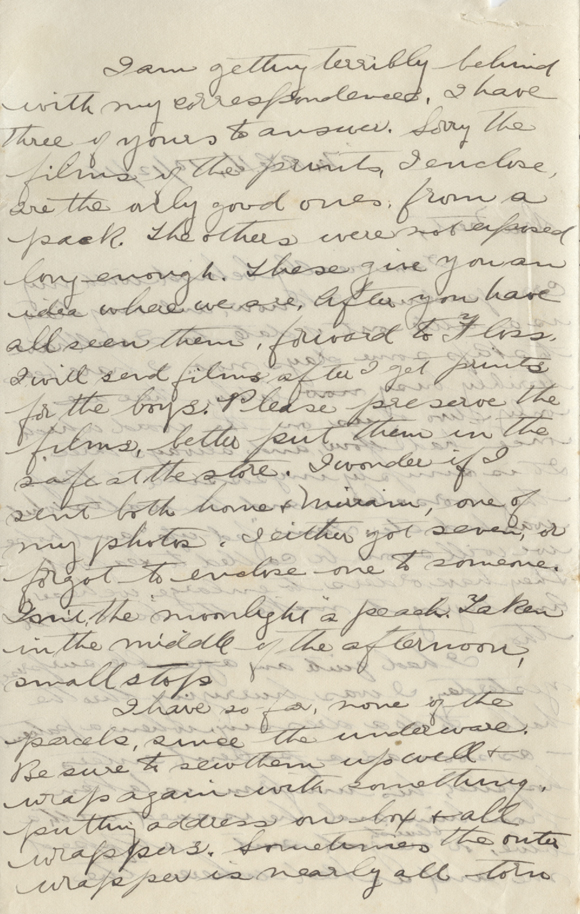 I am getting terribly behind
with my correspondence. I have
three of yours to answer. Sorry the
films of the prints, I enclose,
are the only good ones, from a
pack. The others were not exposed
long enough. These give you an
idea where we are. After you have
all seen them, forward to Floss.
I will send films after I get prints
for the boys. Please preserve the
films, better put them in the
safe at the store. I wonder if I
sent both home & Miriam, one of
my photos. I either got seven, or
forgot to enclose one to someone.
Isn't the "moonlight" a peach. Taken
in the middle of the afternoon,
small stop
I have so far, none of the
parcels, since the underware.
Be sure to sew them up well &
wrap again with something.
putting address on box & all
wrappers. Sometimes the outer
wrapper is nearly all torn